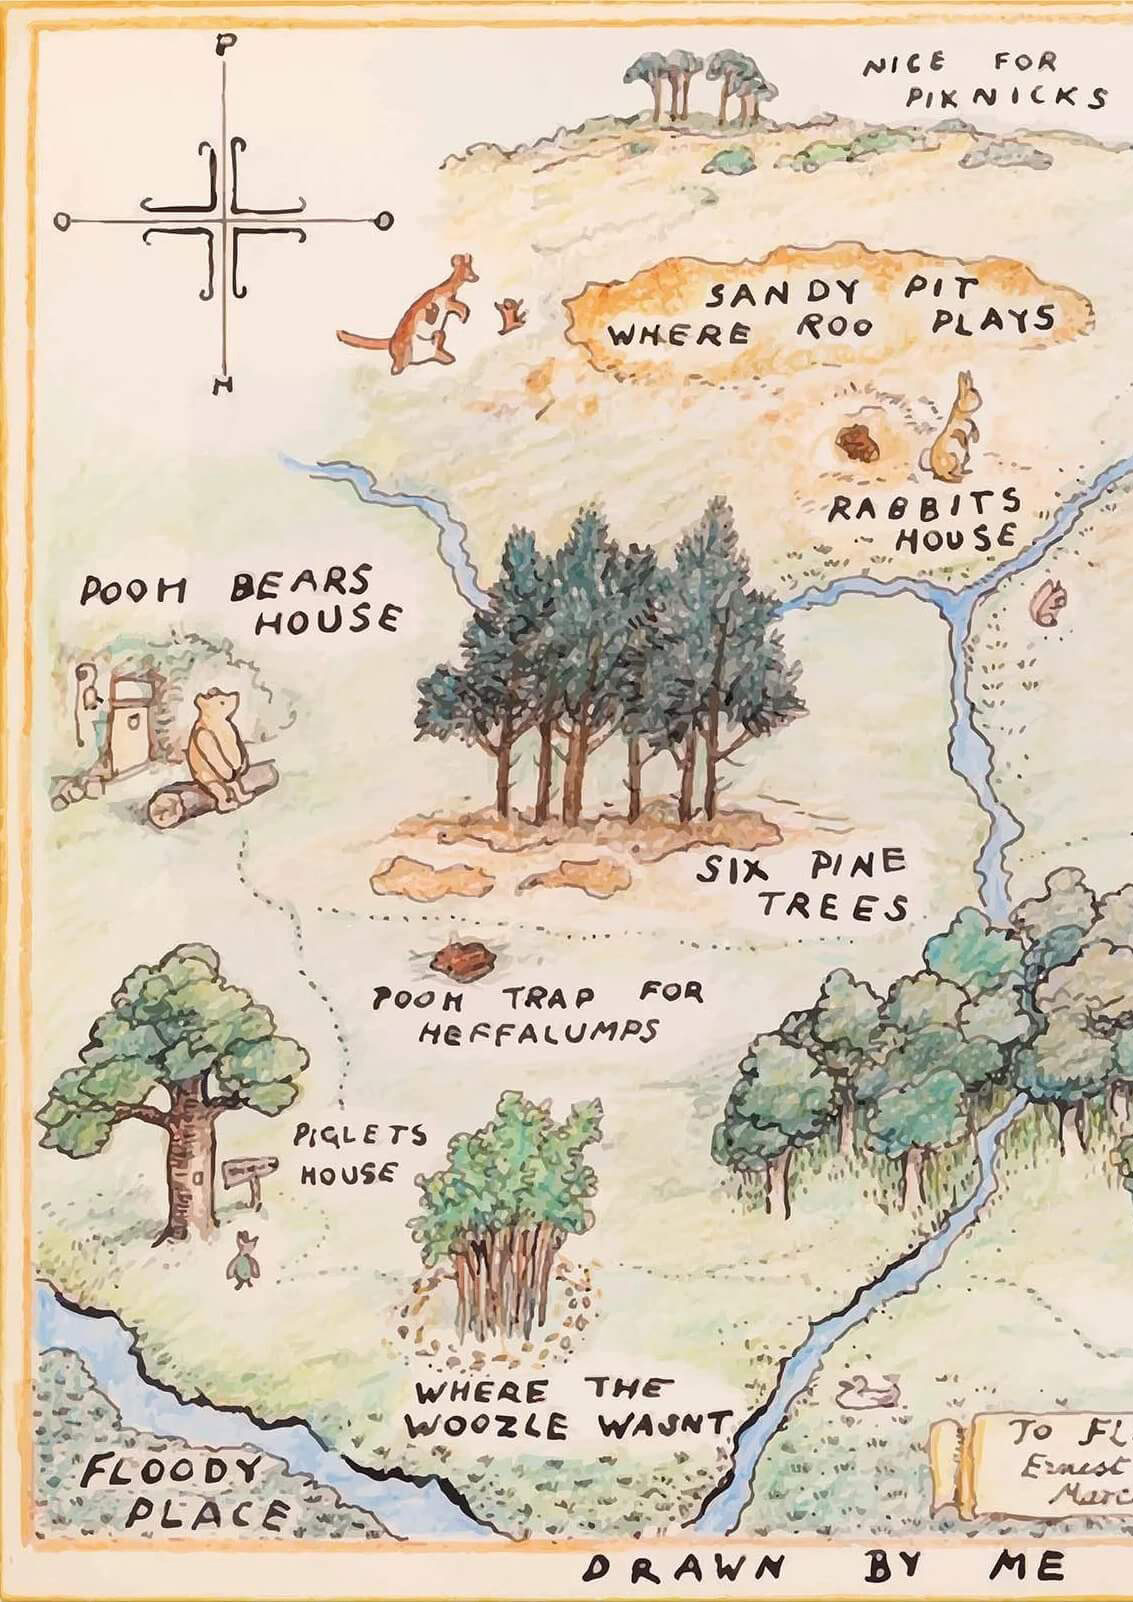 P
NICE FOR
PIKNICKS
O O
SANDY PIT
WHERE ROO PLAYS
H
RABBITS
HOUSE
POOH BEARS
HOUSE
SIX PINE
TREES
POOH TRAP FOR
HEFFALUMPS
PIGLETS
HOUSE
WHERE THE
WOOZLE WASNT
TO
Ernest
FLOODY
PLACE
DRAWN BY ME